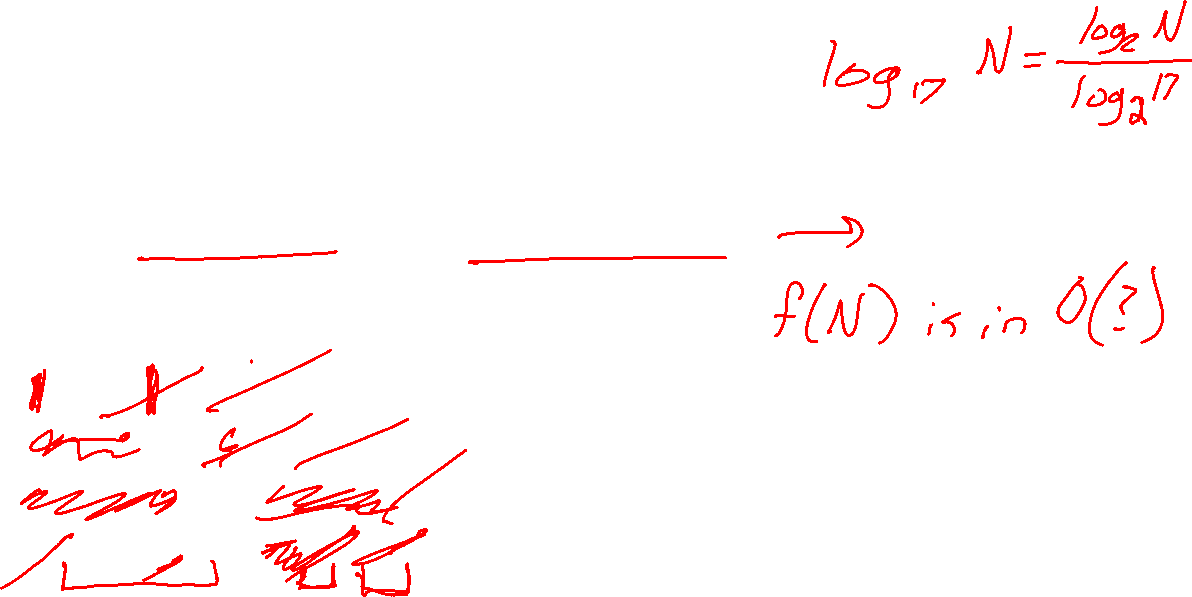 log₁₇ N = log₂ N / log₂ 17
f(N) is in O(?)